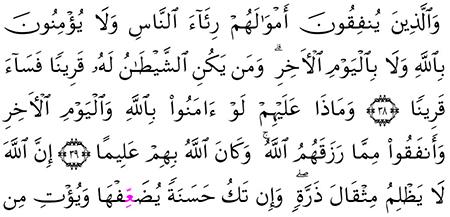 وَٱلَّذِينَ يُنفِقُونَ أَمْوَٰلَهُمْ رِئَآءَ ٱلنَّاسِ وَلَا يُؤْمِنُونَ
بِٱللَّهِ وَلَا بِٱلْيَوْمِ ٱلْأَخِرِ ۗ وَمَن يَكُنِ ٱلشَّيْطَٰنُ لَهُۥ قَرِينًا فَسَآءَ
قَرِينًا ﴿٣٨﴾ وَمَاذَا عَلَيْهِمْ لَوْ ءَامَنُوا۟ بِٱللَّهِ وَٱلْيَوْمِ ٱلْأَخِرِ
وَأَنفَقُوا۟ مِمَّا رَزَقَهُمُ ٱللَّهُ ۚ وَكَانَ ٱللَّهُ بِهِمْ عَلِيمًا ﴿٣٩﴾ إِنَّ ٱللَّهَ
لَا يَظْلِمُ مِثْقَالَ ذَرَّةٍ ۖ وَإِن تَكُ حَسَنَةً يُضَعِّفْهَا وَيُؤْتِ مِن